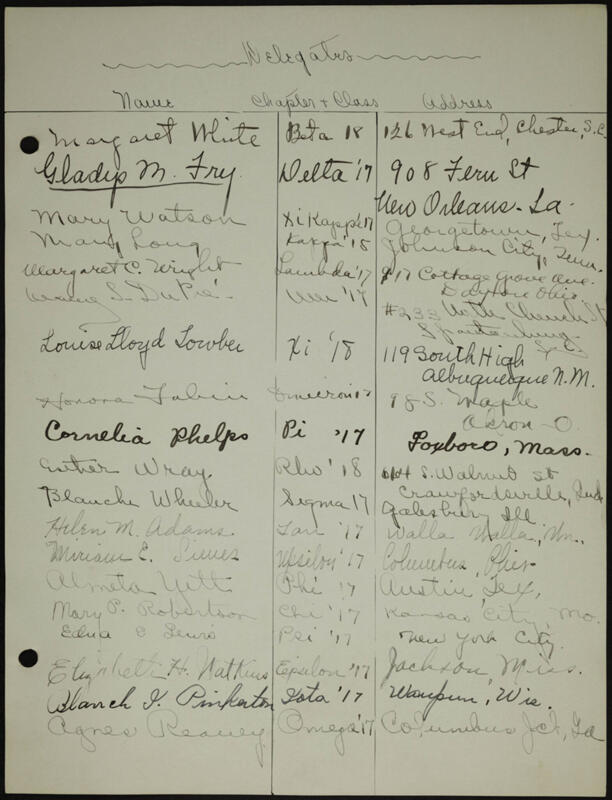 Delegates
Name Chapter + Class Address
Margaret White Beta 18 126 West End, Chester, S.C.
Gladys M. Fry Delta '17 908 Fern St
New Orleans - La
Mary Watson Xi Kappa '17 Georgetown, Tex.
Mary Long Kappa '18 Johnson City, Tenn.
Margaret C. Wright Lambda '17 Cottage Grove Ave.
Dayton Ohio.
S. DuPré '17 #233 North Church St
Spartanburg
Louise Lloyd Lowber Xi '18 119 South High
Albuquerque N.M.
Honora Tobin Omicron 17 98 S. Maple
Akron - O
Cornelia Phelps Pi '17 Foxboro, Mass.
Esther Wray Rho '18 S. Walnut St
Crawfordsville, Ind
Blanche Wheeler Sigma 17 Galesburg Ill.
Helen M. Adams Tau '17 Walla Walla, Wn.
Miriam E. Upsilon '17 Columbus, Ohio
Almeta Phi '17 Austin, Tex,
Mary P. Robertson Chi '17 Kansas City, Mo.
Edna E Lewis Psi '17 New York City.
Elizabeth H. Watkins Epsilon '17 Jackson, Miss.
Blanch I. Pinkerton Iota '17 Waupun, Wis.
Agnes Reaney Omega '17 Columbus Jct, Ia